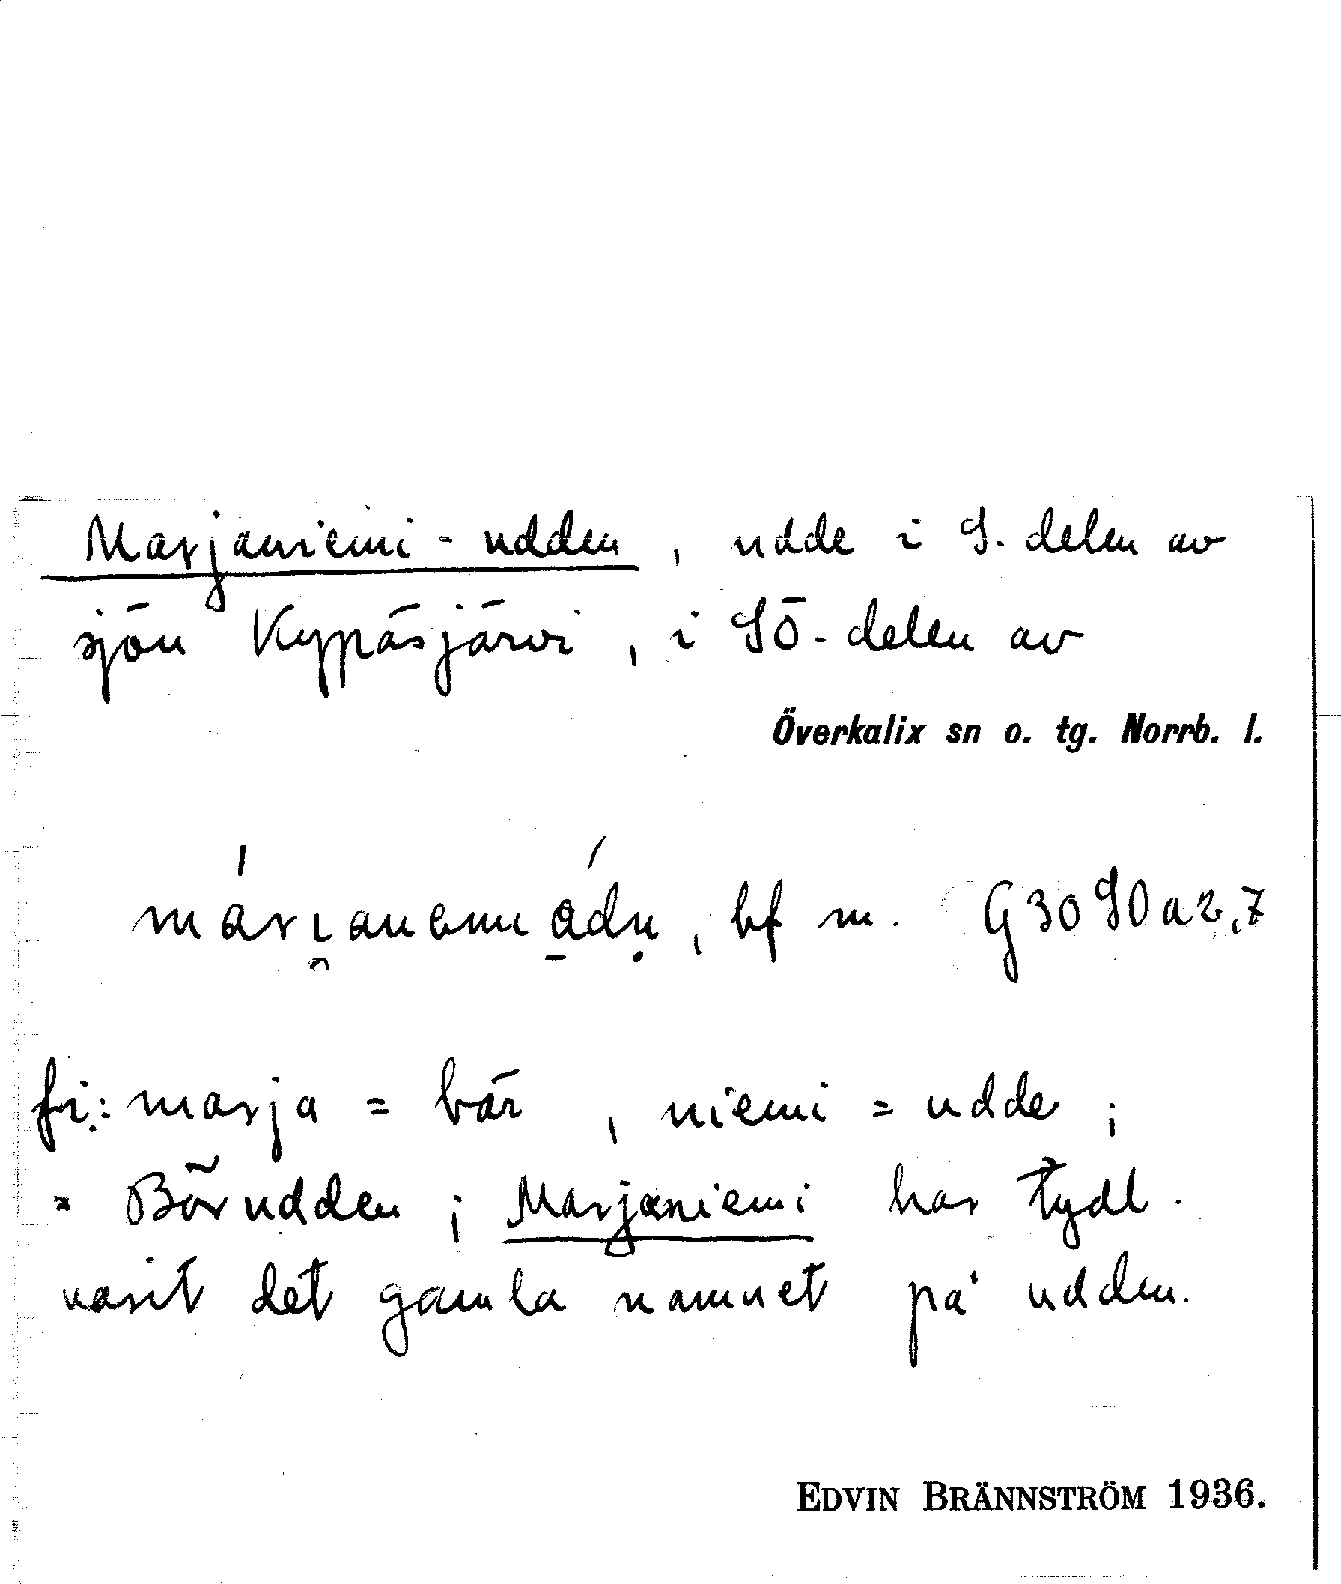 Marjaniemi-udden, udde i S. delen av
sjön Kypäsjärvi, i SÖ-delen av
Överkalix sn o. tg. Norrb. l.
márı̯anemu ádṇ, bf m. G30 SO a 2,7
fi.: marja = bär, niemi = udde;
= Börudden; Marjaniemi har tydl.
varit det gamla namnet på udden.
EDVIN BRÄNNSTRÖM 1936.